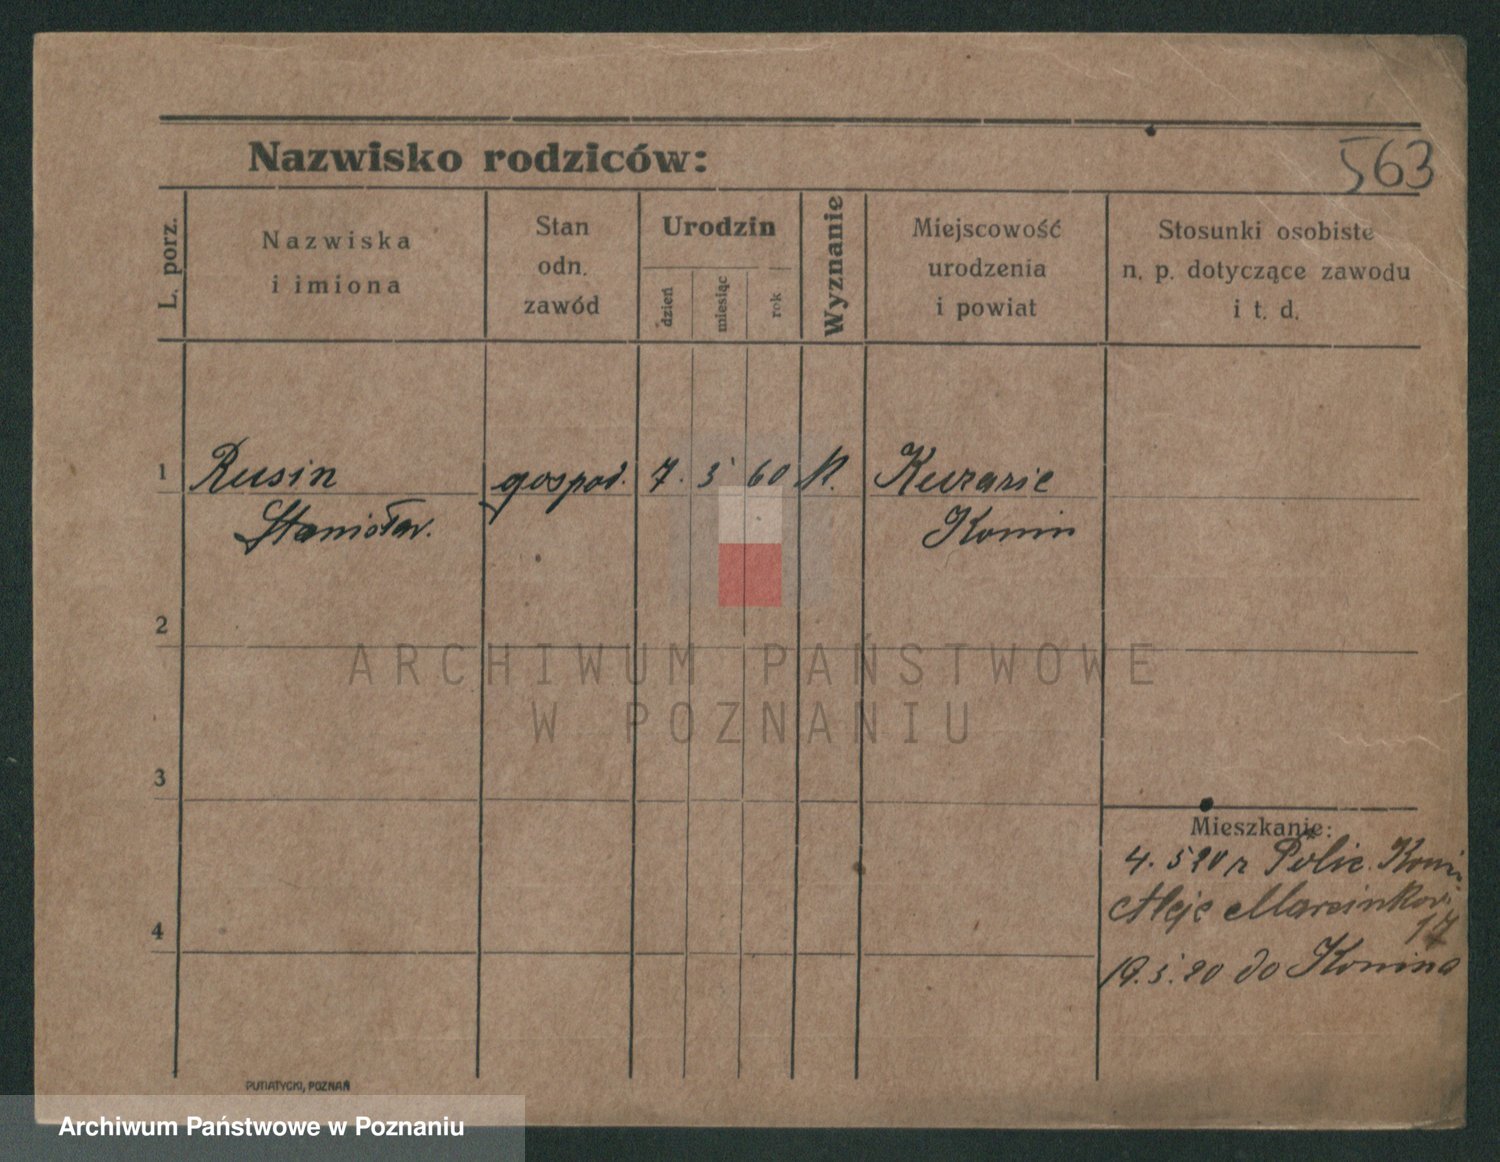 Nazwisko rodziców:
563
L. porz.
Nazwiska
i imiona
Stan
odn.
zawód
Urodzin
dzień
miesiąc
rok
Wyznanie
Miejscowość
urodzenia
i powiat
Stosunki osobiste
n. p. dotyczące zawodu
i t. d.
1 Rusin gospod. 7. 5 60
Stanisław. Konin
2
ARCHIWUM PAŃSTWOWE
W POZNANIU
3
Mieszkanie:
4. 5 20
Aleje Marcinkow.
17
4
19. 5. 20 do Konina
PUTIATYCKI, POZNAŃ
Archiwum Państwowe w Poznaniu